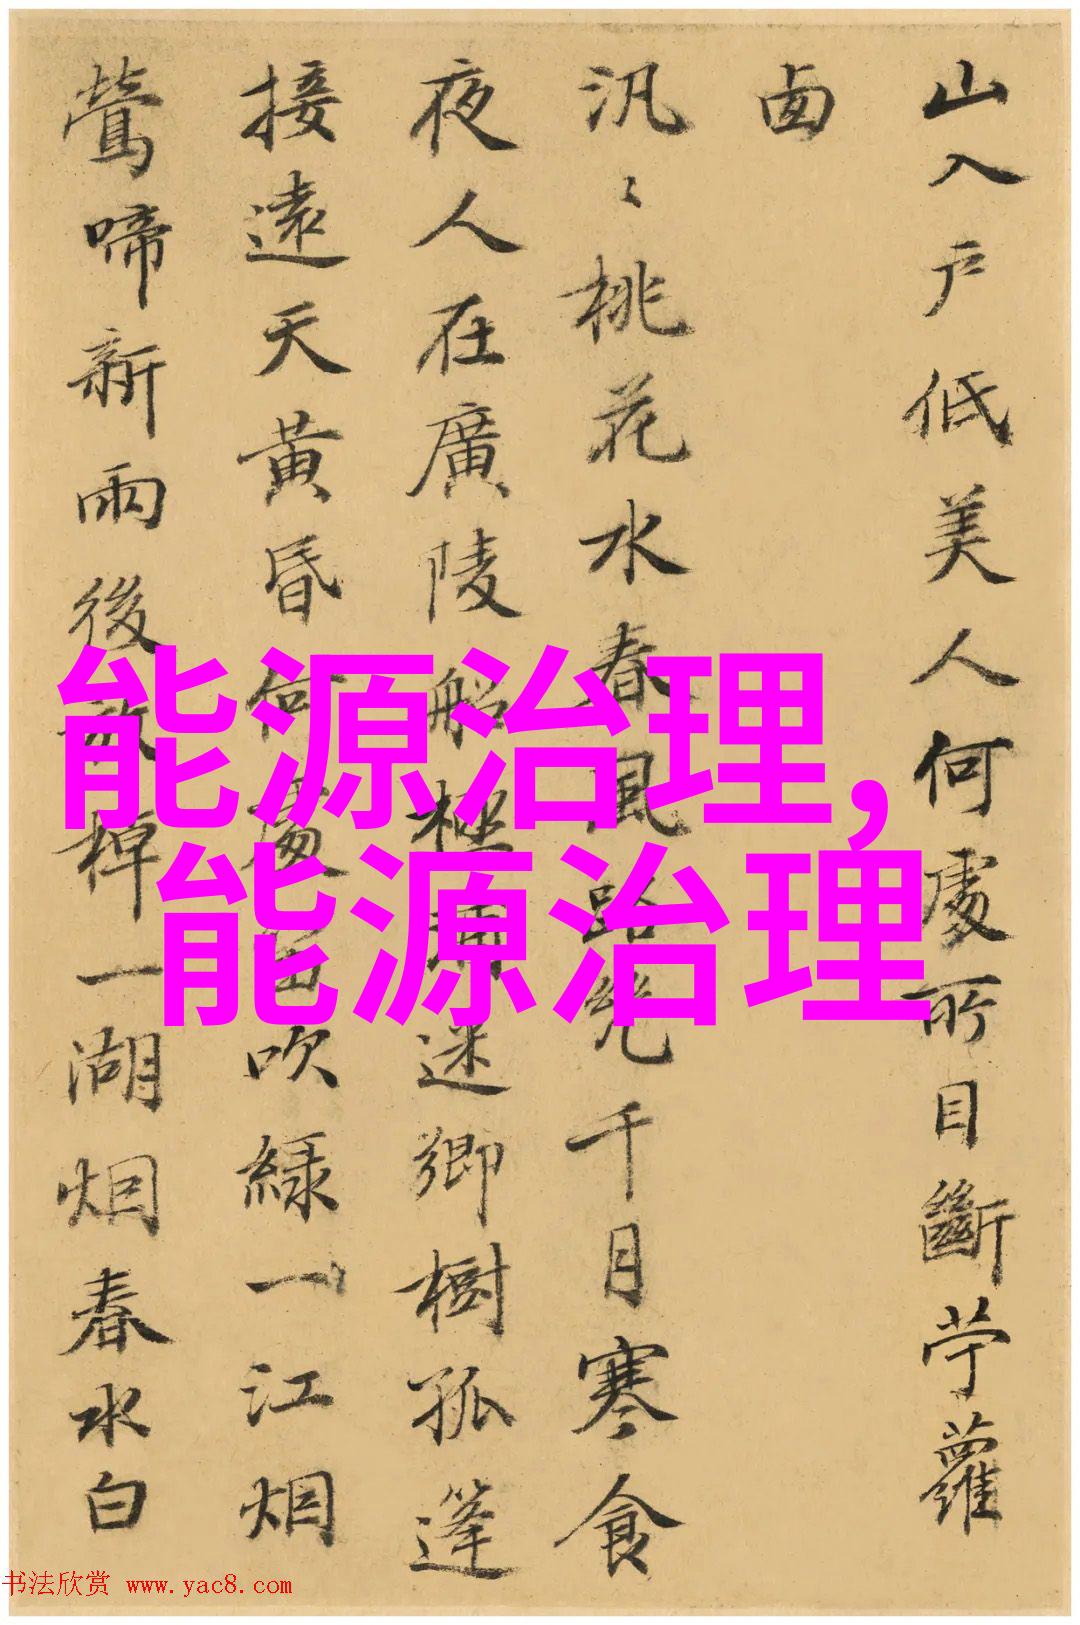 山入户低美人何處所目斷苧蘿
西
汎〻桃花水春風路幾千月寒食
夜人在廣陵船極浦迷鄉樹孤篷
接遠天黃昏何處吹綠一江烟
鶯啼新雨後放棹一湖烟春水白
能源治理,
能源治理
书法欣赏 www.yac8.com